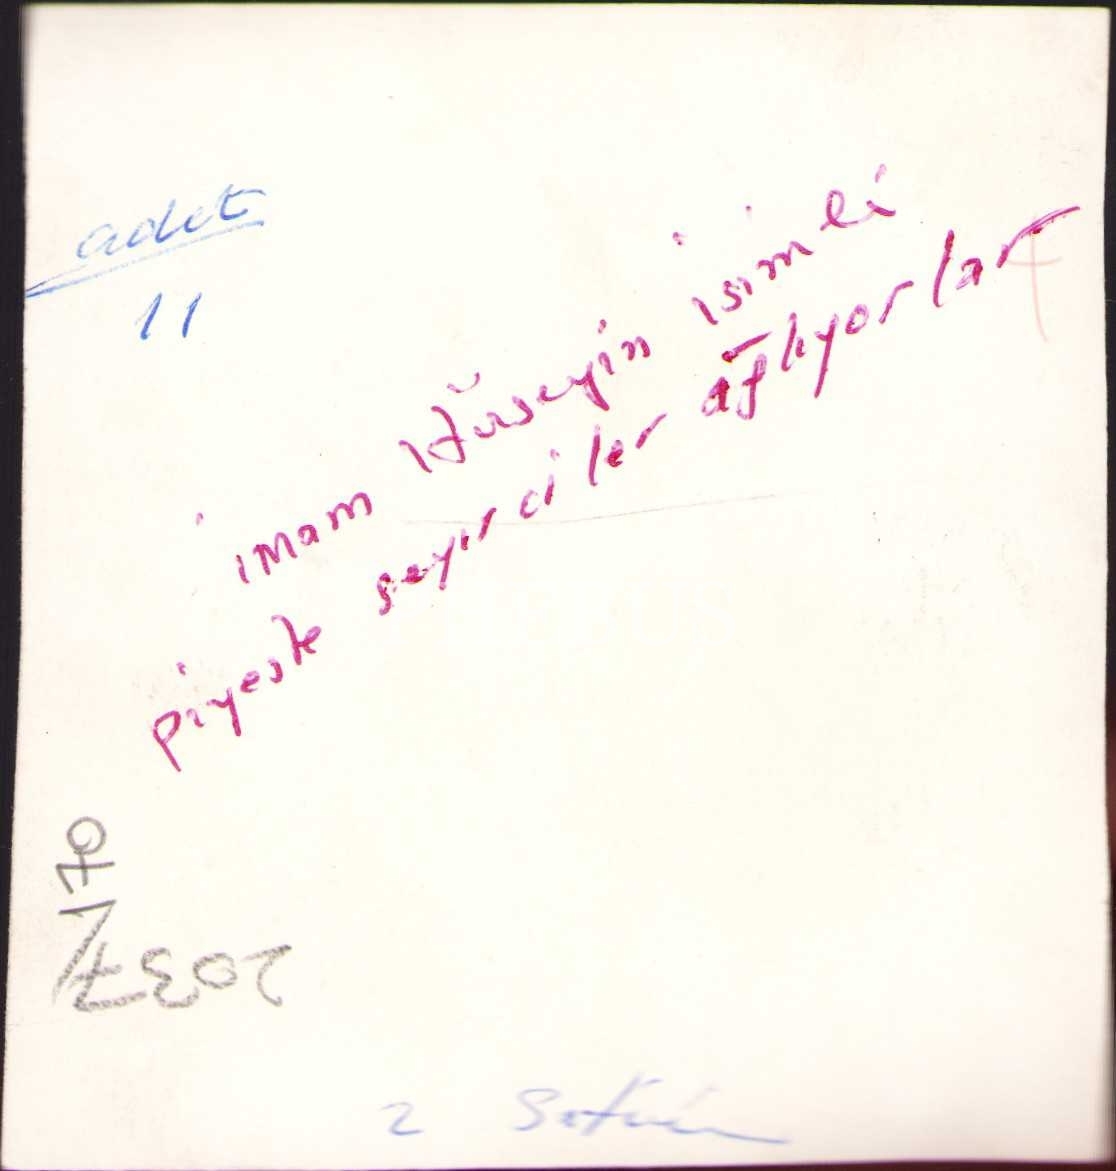 adet
11
imam Hüseyin isimli
piyeste seyirciler ağlıyorlar
2037/70
2 Sütun